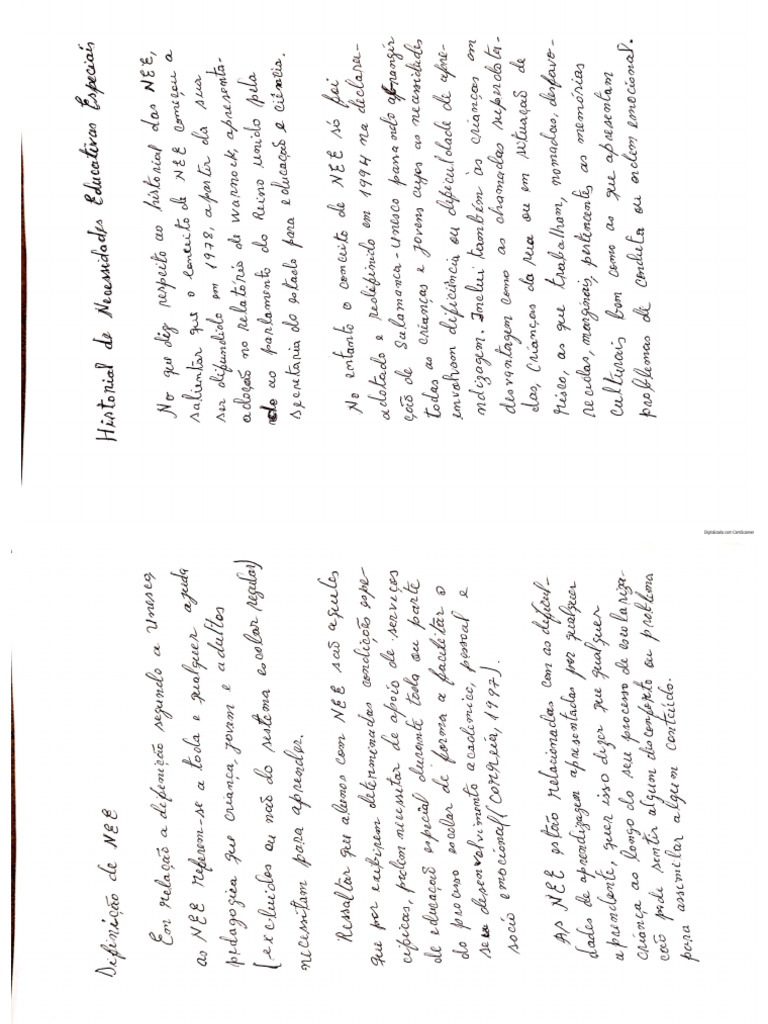 Historial de Necessidades Educativas Especiais
No que diz respeito ao historial das NEE,
salientar que o conceito de NEE começou a
ser difundido em 1978, a partir da sua
adoção no relatório de Warnock, apresenta-
do ao parlamento do Reino unido pela
secretaria do estado para educação e ciência.
No entanto o conceito de NEE só foi
adotado e redifinido em 1994 na declara-
ção de Salamanca-Unesco passando abrangir
todas as crianças e jovens cujas as necessidades
envolvam dificiência ou dificuldade de apre-
ndizagem. Inclui também as crianças em
desvantagem como as chamadas superdota-
das, crianças da rua ou em situação de
risco, as que trabalham, nomadas, desfavo-
recidas, marginais, pertencentes as memórias
culturais bem como as que apresentam
problemas de conduta ou ordem emocional.
Digitalizada com CamScanner
Difinição de NEE
Em relação a difinição segundo a Unesco
as NEE referem-se a toda e qualquer ajuda
pedagogica que criança, jovem e adultos
(excluidos ou não do sistema escolar regular)
necessitam para aprender.
Ressaltar que alunos com NEE são aqueles
que por exibirem determinadas condições espe-
cificas, podem necessitar de apoio de serviços
de educação especial durante todo ou parte
do processo escolar de forma a facilitar o
seu desenvolvimento academico, pessoal e
socio emocional (Correia, 1997).
As NEE estão relacionadas com as dificul-
dades de aprendizagem apresentadas por qualquer
aprendente, quer isso dizer que qualquer
criança ao longo do seu processo de escolariza-
ção pode sentir algum desconforto ou problema
para assimilar algum conteúdo.